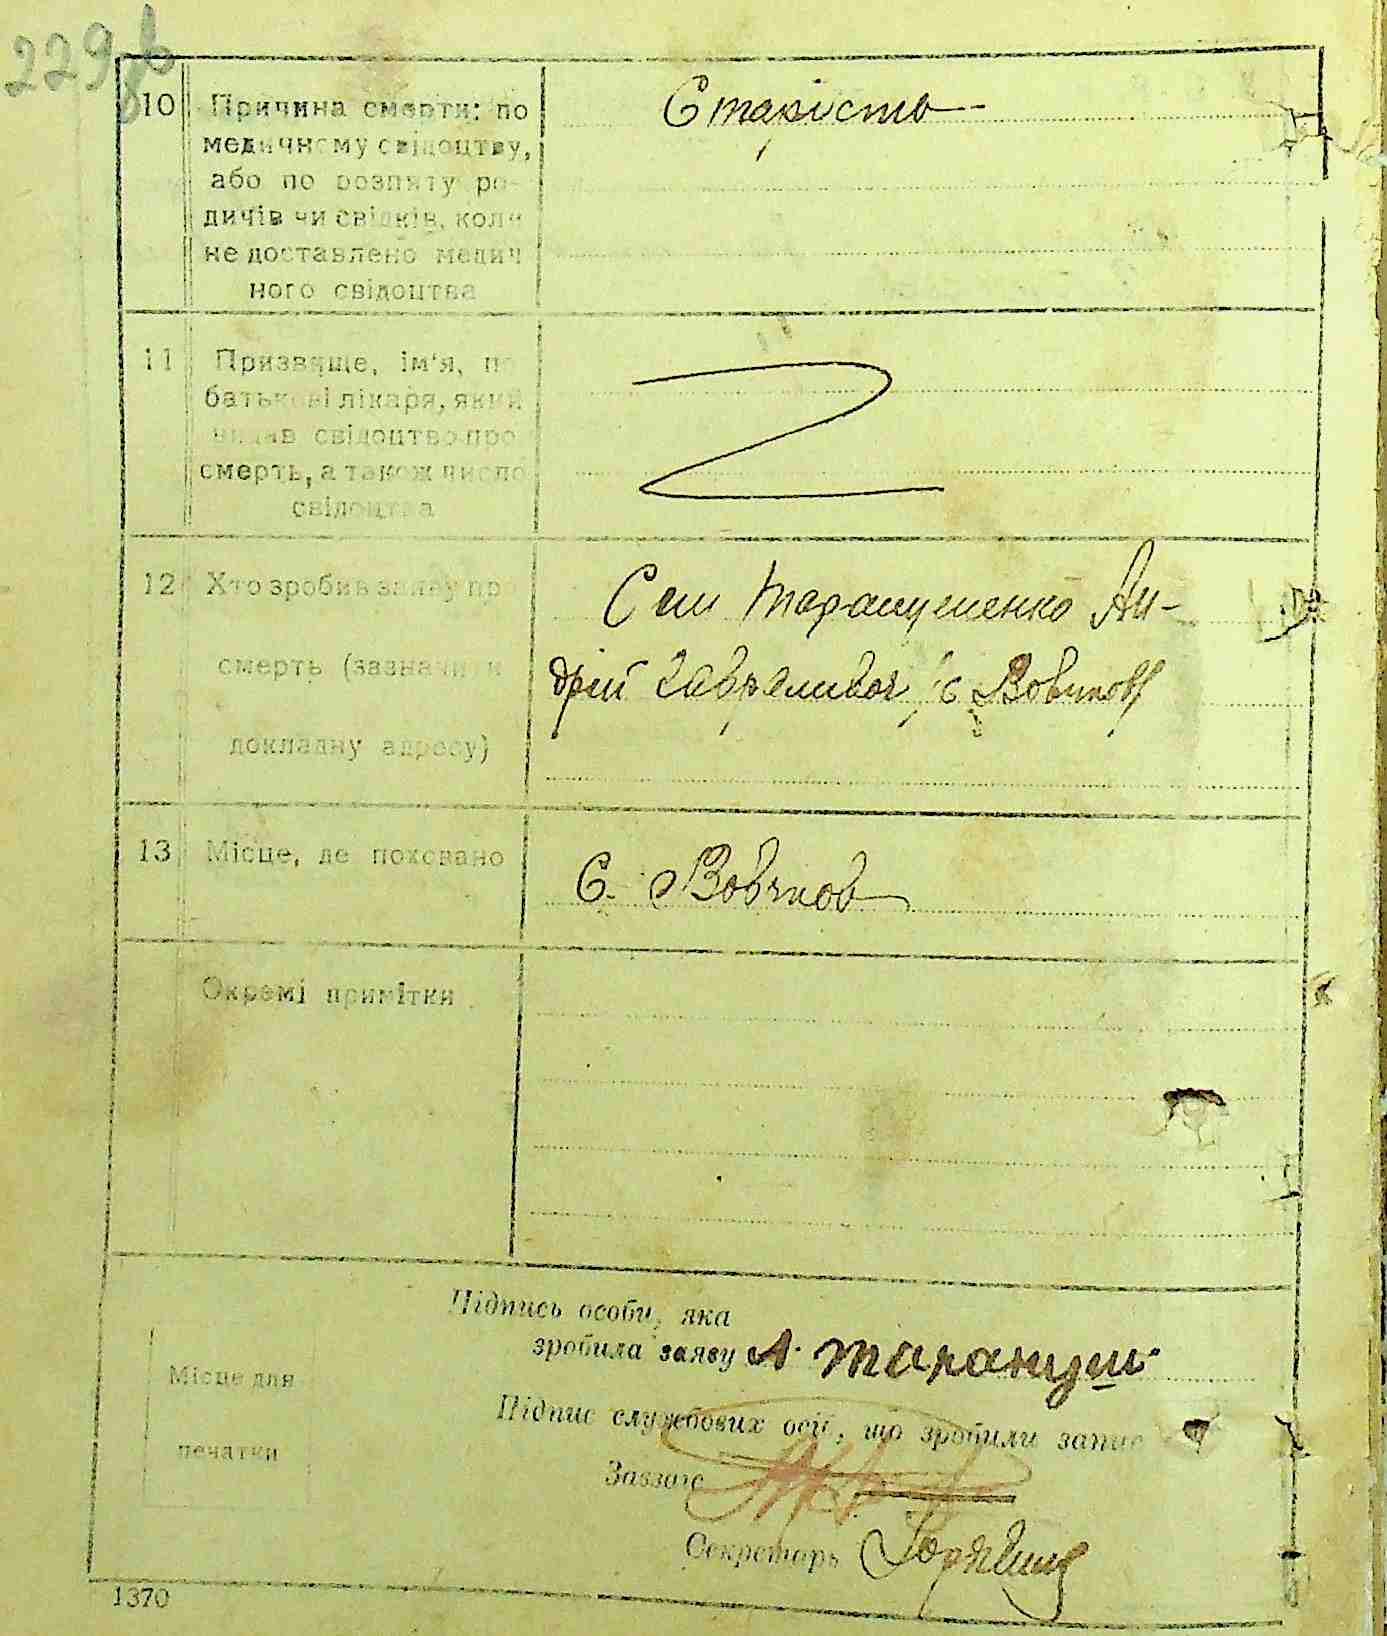 229
10 Причина смерти: по Старість
медичному свідоцтву,
або по розпиту ро-
дичів чи свідків, коли
не доставлено медич
ного свідоцтва
11 Призвище, ім'я, по
батькові лікаря, який
видав свідоцтво про
смерть, а також число
свідоцтва
12 Хто зробив заяву про Син Таранушенко Ан-
смерть (зазначити дрій Гаврилович, с Вовчков
докладну адресу)
13 Місце, де поховано С. Вовчков
Окремі примітки
Підпись особи, яка
зробила заяву А. Тарануш
Місце для
печатки
Підпис службових осіб, що зробили запис
Завзагс
Секретарь
1370